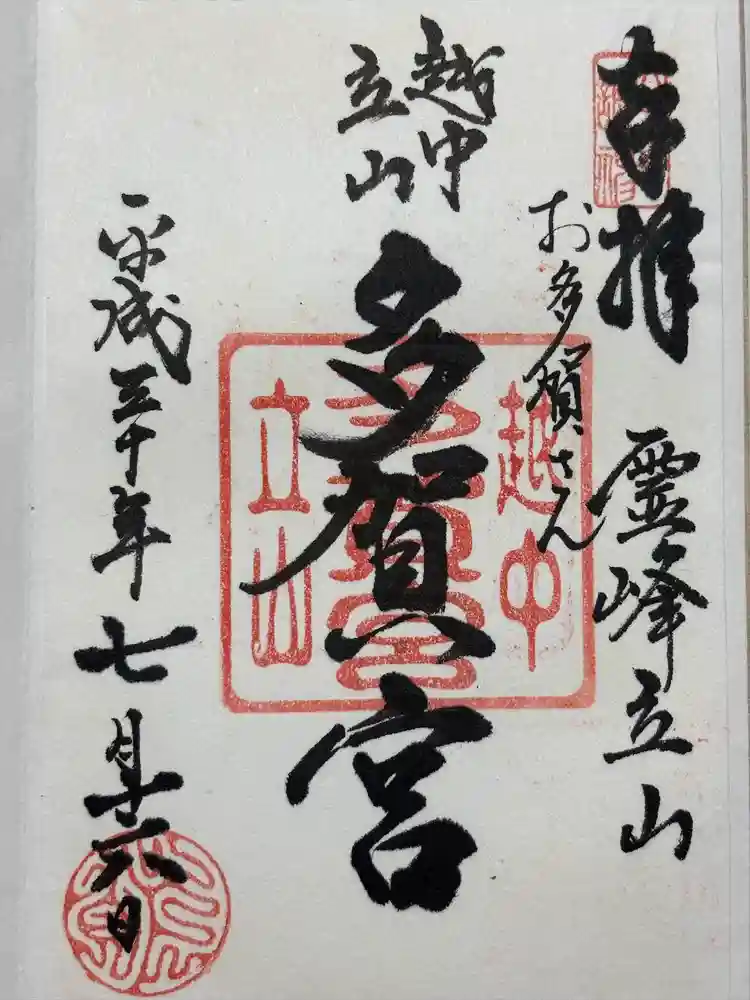 奉拝
霊峰立山
お多賀さん
越中
立山
多賀宮
越中
多賀宮
立山
平成三十年七月十六日